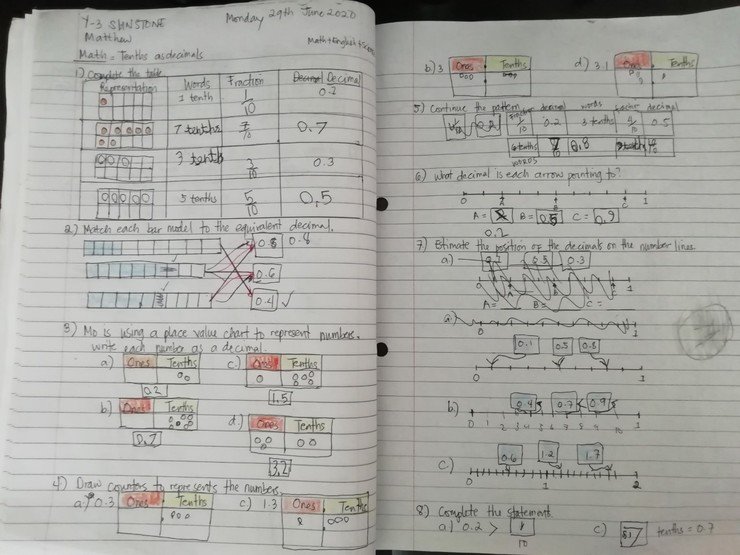 Y-3 SUNSTONE
Monday 29th June 2020
Matthew
Math = Tenths as decimals
1) Complete the table
Representation Words Fraction Decimal
1 tenth 1/10
7 tenths 7/10 0.7
3 tenth 3/10 0.3
5 tenths 5/10 0.5
2) Match each bar model to the equivalent decimal.
0.8 0.8
0.6
0.4 ✓
3) Mo is using a place value chart to represent numbers.
write each number as a decimal.
a) Ones Tenths c) Ones Tenths
0.2 1.5
b) Ones Tenths d) Ones Tenths
0.7 3.2
4) Draw counters to represents the numbers.
a) 0.3 Ones Tenths c) 1.3 Ones Tenths
b) 3 Ones Tenths d) 3.1 Ones Tenths
5) Continue the pattern
decimal words decimal
0.2 3 tenths 4/10 0.5
6 tenths 0.8
words
6) What decimal is each arrow pointing to?
0 A B C 1
A = B = 0.5 C = 0.9
0.2
7) Estimate the position of the decimals on the number lines.
a) 0.3
A = B = C =
a)
0.1 0.5 0.8
0 1
b) 0.4 0.7 0.9
0 1
c) 0.6 1.2 1.7
0 1 2
8) Complete the statement.
a) 0.2 > 1/10 c) 7 tenths = 0.7